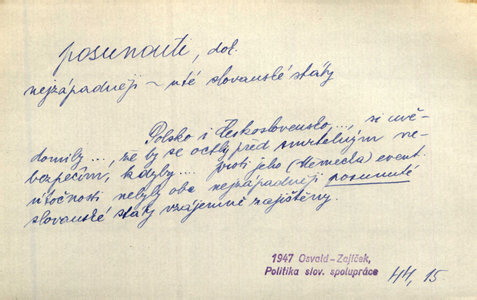 posunouti, dok.
nejzápadněji ~ uté slovanské státy
Polsko i Československo..., se uvě-
domily..., že by se octly před smrtelným ne-
bezpečím, kdyby... proti jeho (Německa) event.
útočnosti nebyly obě nejzápadněji posunuté
slovanské státy vzájemně zajištěny.
1947 Osvald-Zajíček,
Politika slov. spolupráce
44, 15